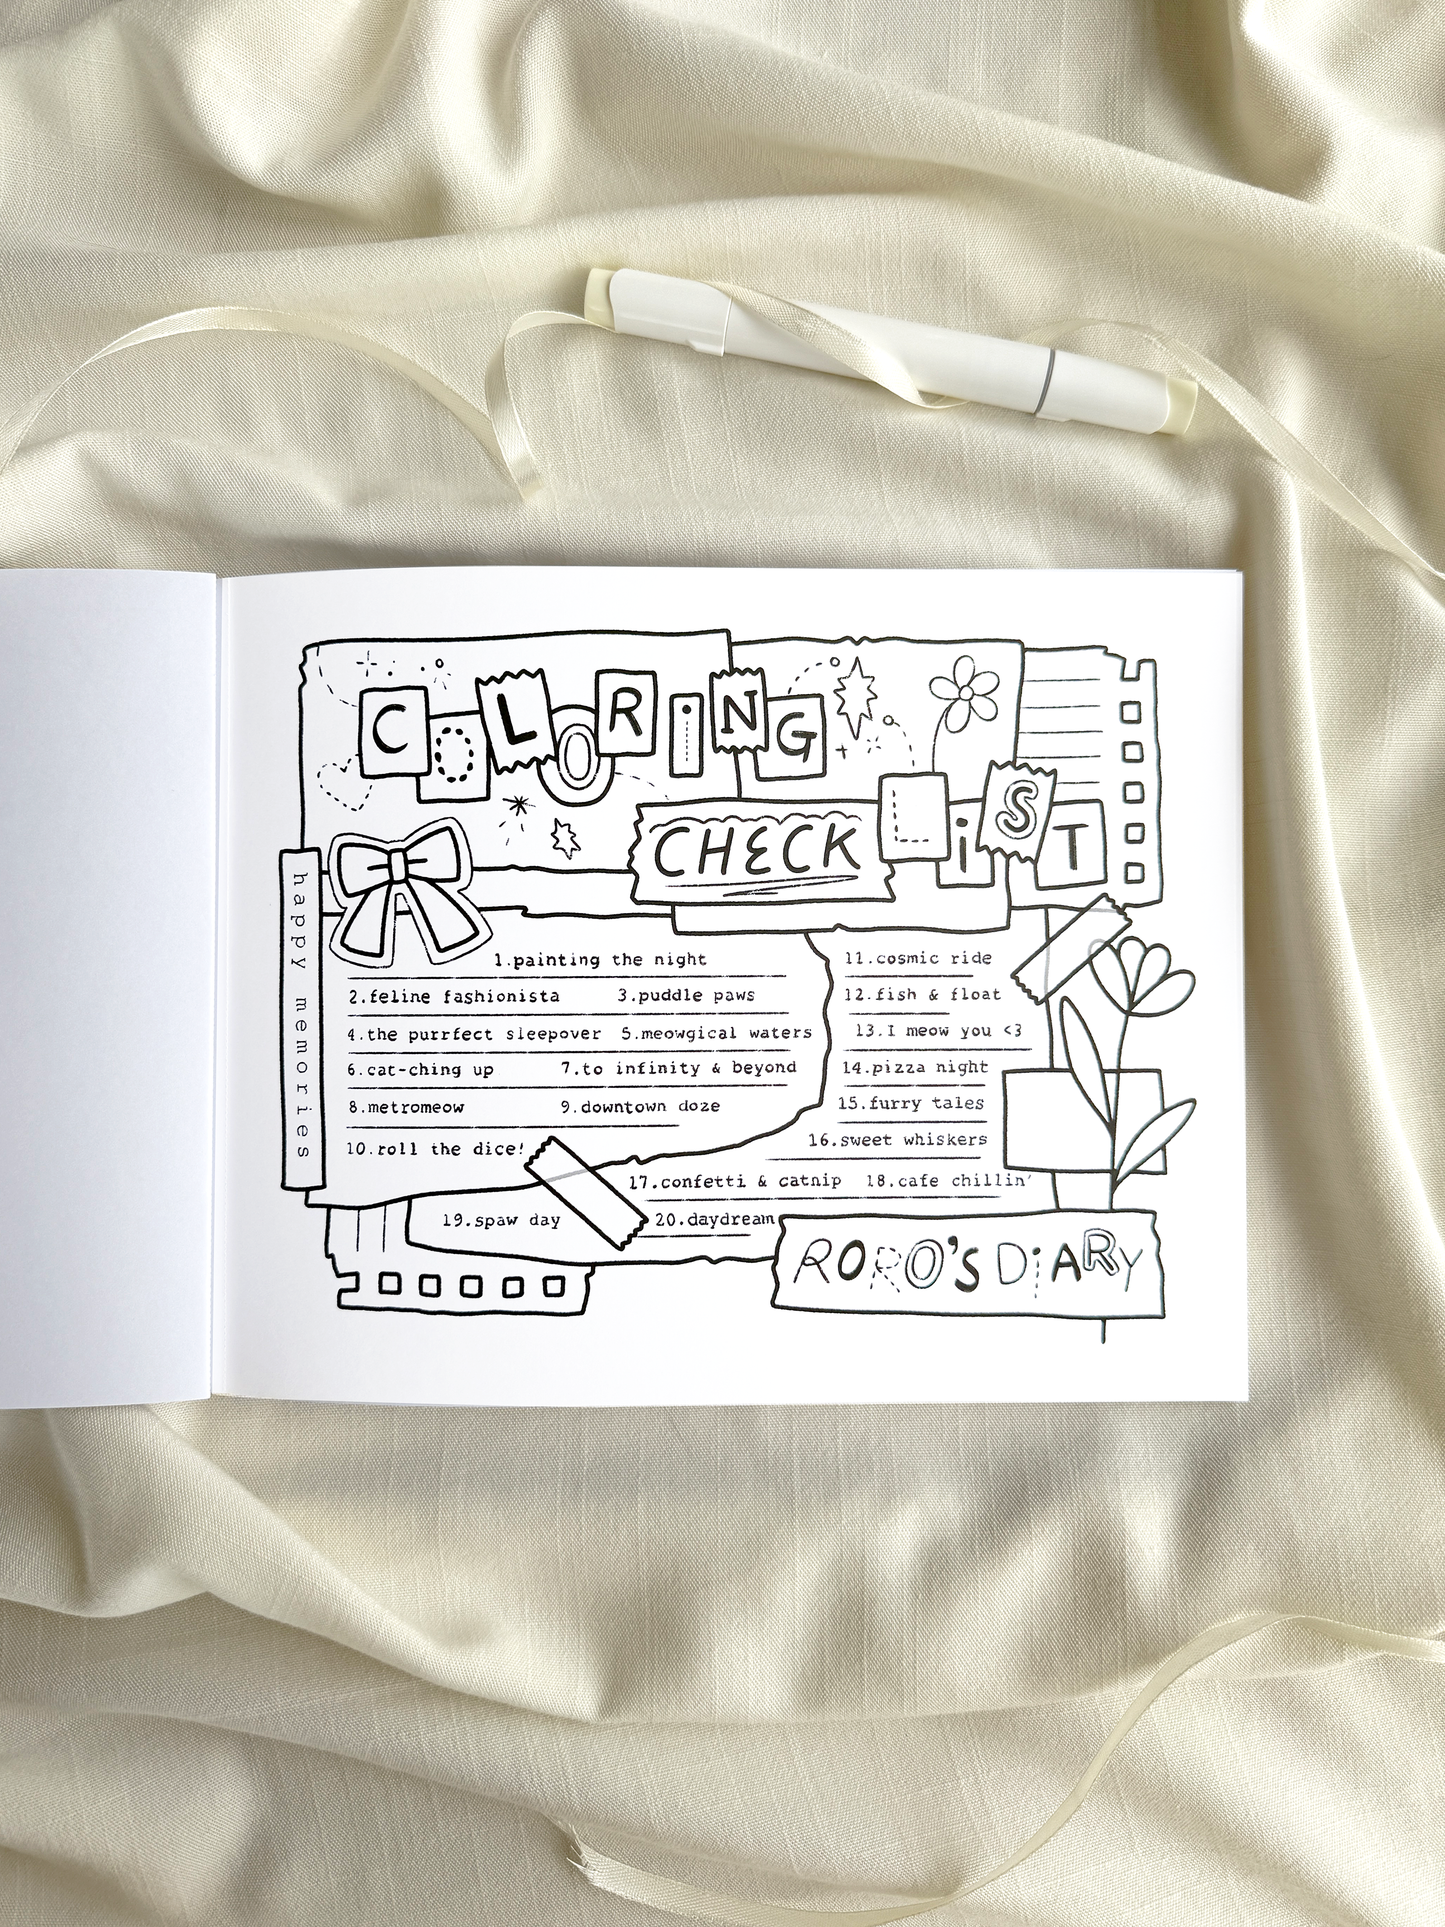 COLORING
CHECK LiST
happy memories
1.painting the night
2.feline fashionista 3.puddle paws
4.the purrfect sleepover 5.meowgical waters
6.cat-ching up 7.to infinity & beyond
8.metromeow 9.downtown doze
10.roll the dice!
11.cosmic ride
12.fish & float
13.I meow you <3
14.pizza night
15.furry tales
16.sweet whiskers
17.confetti & catnip 18.cafe chillin'
19.spaw day 20.daydream
RORO'S DiARY